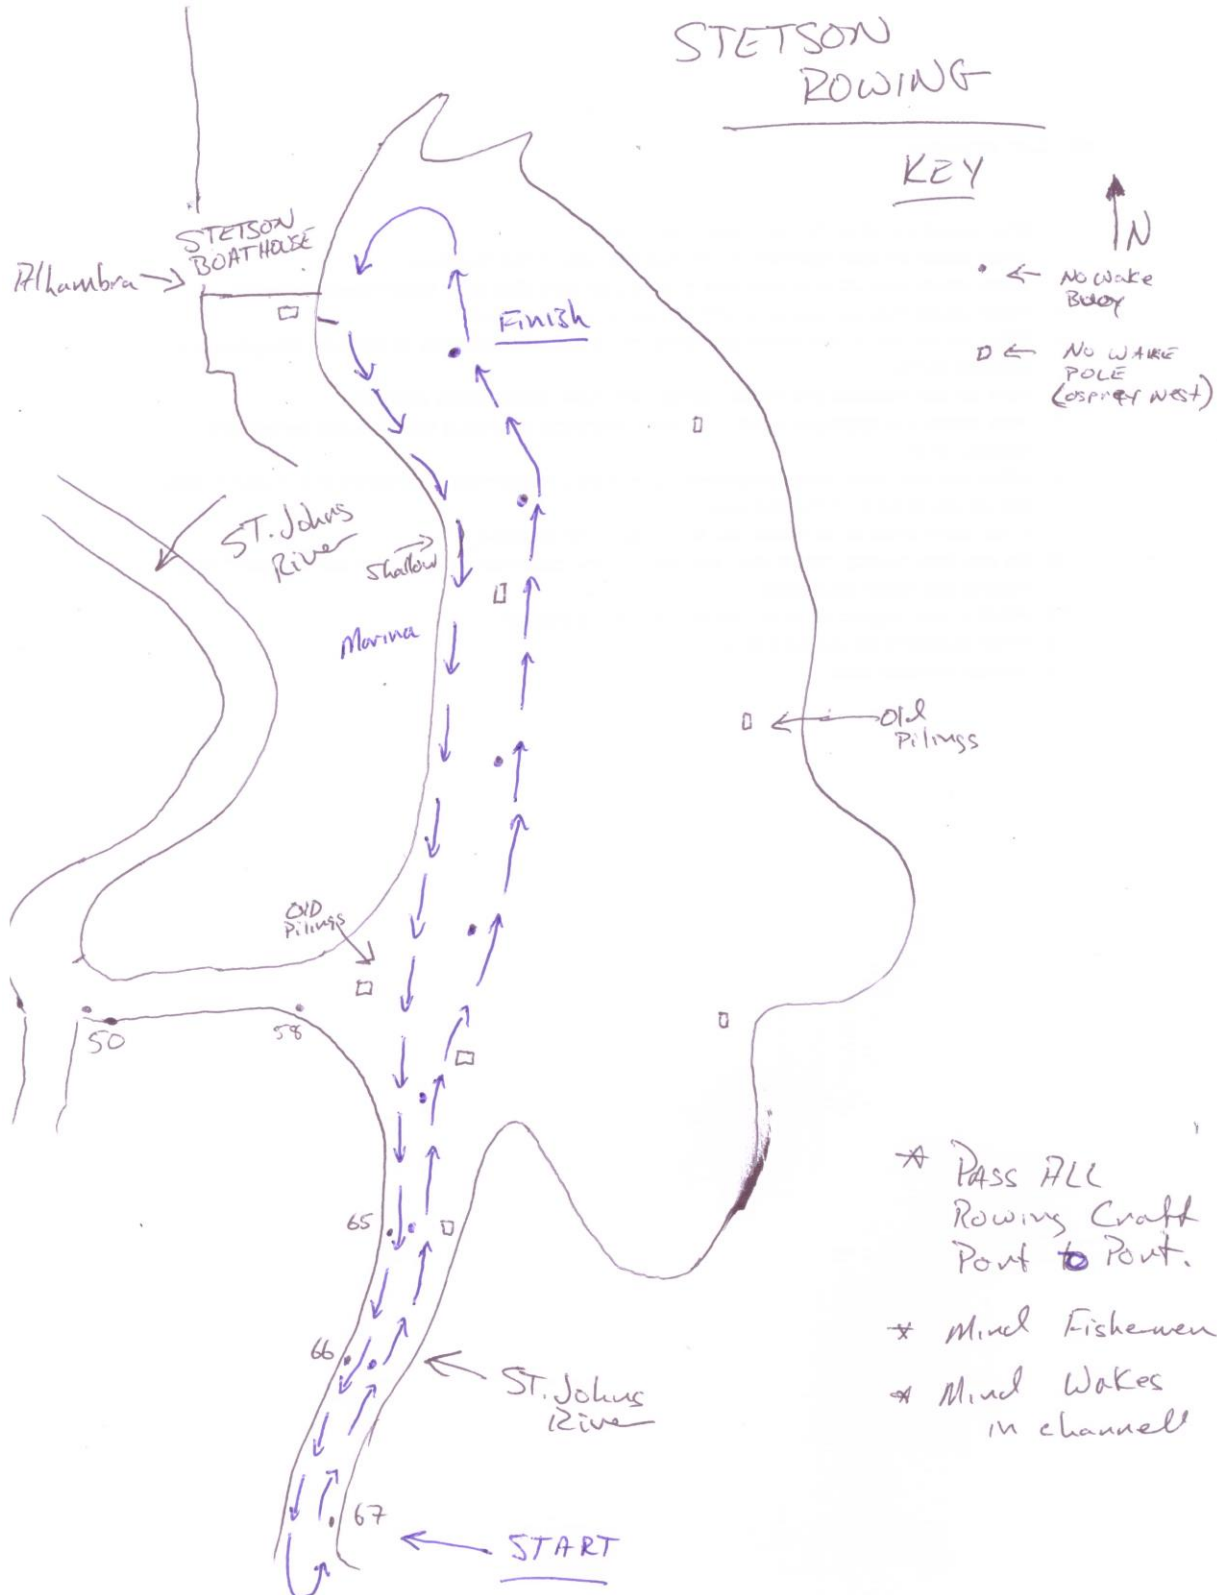 STETSON
ROWING
KEY
N
No Wake
Buoy
NO WAKE
POLE
(osprey nest)
STETSON
BOATHOUSE
Alhambra
Finish
ST. Johns
River
Shallow
Marina
Old
Pilings
OLD
Pilings
50
58
65
66
67
ST. Johns
River
START
* PASS ALL
Rowing Craft
Port to Port.
* Mind Fishermen
* Mind Wakes
in channell